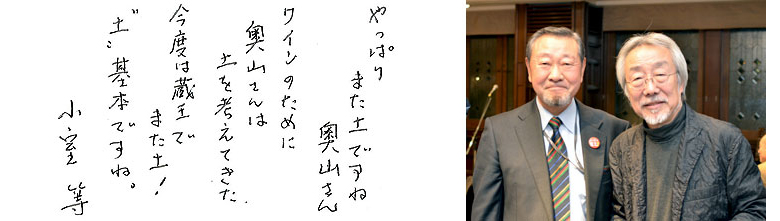 やっぱり
また土ですね
奥山さん
ワインのために
奥山さんは
土を考えてきた
今度は蔵王で
また土!
“土”基本ですね。
小室 等